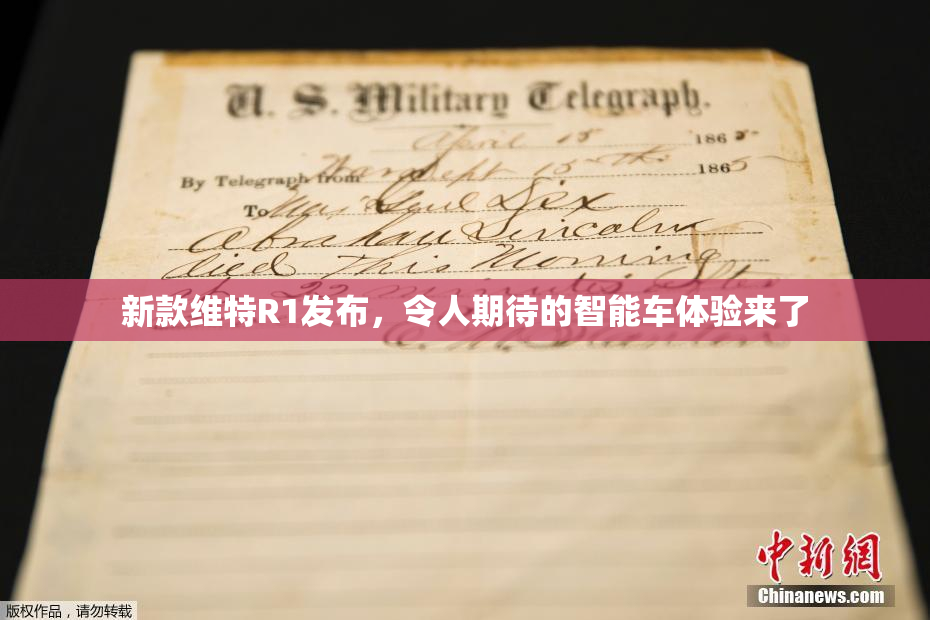 U. S. Military Telegraph.
April 15 1865
By Telegraph from War Dept 15th 1865
To Maj Genl Dix
Abraham Lincoln
died This Morning
at 22 minutes after
新款维特R1发布，令人期待的智能车体验来了
中新网
Chinanews.com
版权作品，请勿转载